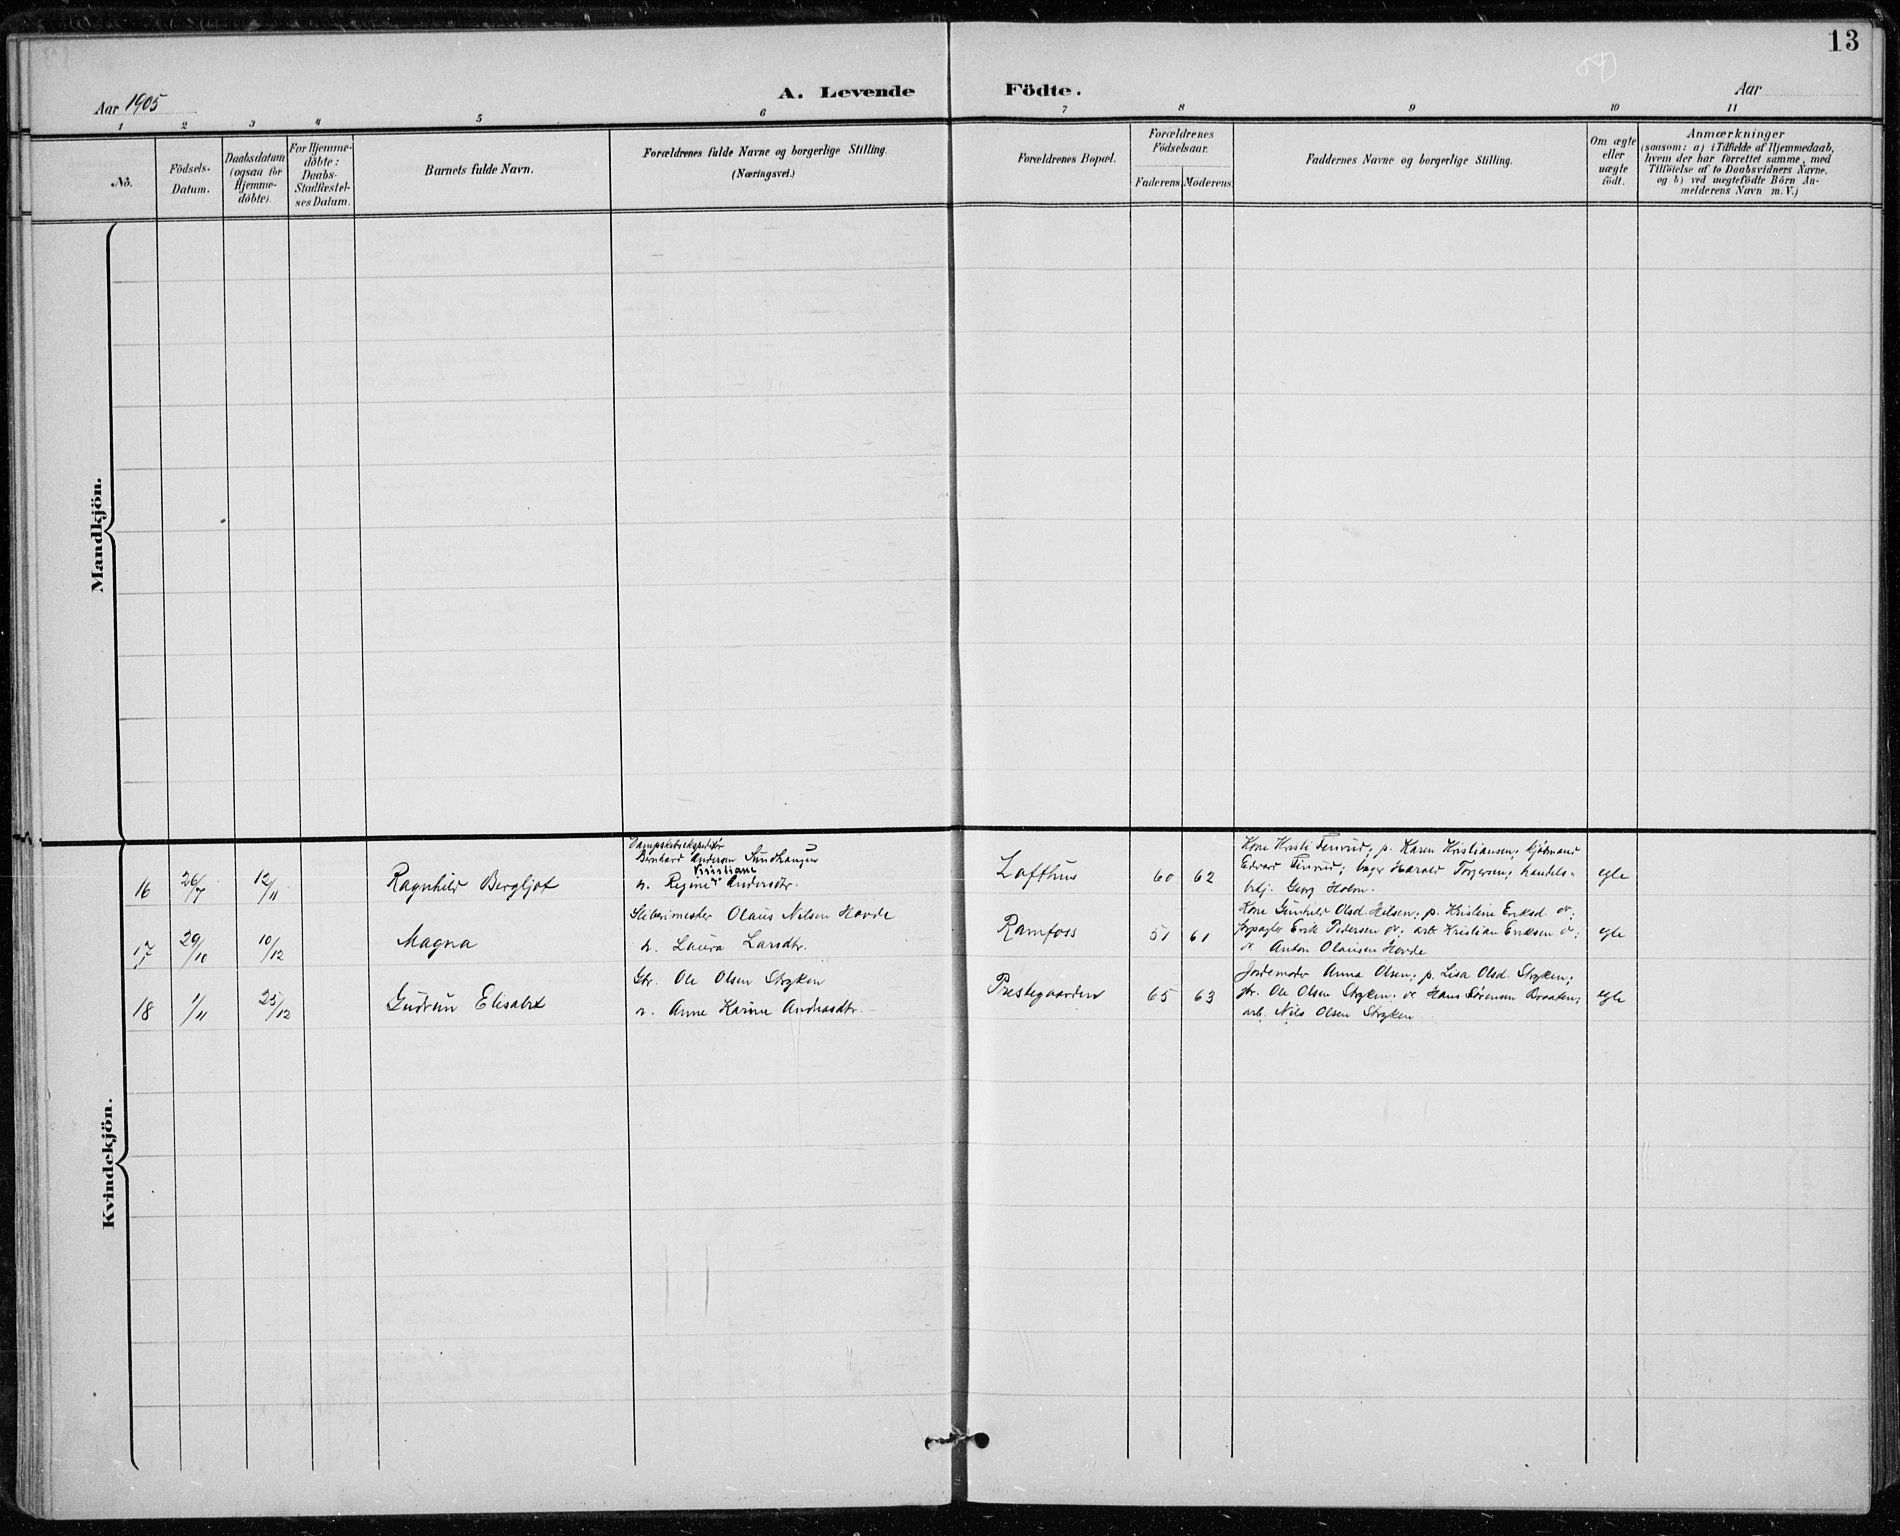 13
Aar 1905
A. Levende Födte.
Aar
1 2 3 4 5 6 7 8 9 10 11
No.
Födsels-
Datum.
Daabsdatum
(ogsaa for
Hjemme-
döbte).
For Hjemme-
döbte:
Daabs-
Stadfæstel-
ses Datum.
Barnets fulde Navn.
Forældrenes fulde Navne og borgerlige Stilling.
(Næringsvei.)
Forældrenes Bopæl.
Forældrenes
Födselsaar.
Faderens. Moderens.
Faddernes Navne og borgerlige Stilling.
Om ægte
eller
uægte
födt.
Anmærkninger
(saasom: a) i Tilfælde af Hjemmedaab,
hvem der har forrettet samme, med
Tilföielse af to Daabsvidners Navne,
og b) ved uægtefödte Börn An-
melderens Navn m. V.)
Mandkjön.
Kvindekjön.
16 26/7 12/11 Ragnhild Bergljot
Bernhard Andersen Sundhaugen
Kristiane
n. Regine Andersdtr.
Lofthus 60 62
Kone Kristi Finrud; p. Karen Kristiansen; kjöbmand
Edvard Finrud; bager Harald Torgersen; handels-
btj. Georg Holm.
egte
17 29/10 10/12 Magna
Sliberimester Olaus Nilsen Hovde
n. Laura Larsdtr.
Ramfoss 51 61
Kone Gunhild Olsd. Hilsen; p. Kristine Eriksd. ov;
Erik Pedersen ov; arb. Kristian Eriksen ov;
ov Anton Olausen Hovde
egte
18 1/11 25/12 Gudrun Elisabet
Gbr. Ole Olsen Stryken
n. Anne Karine Andreasdtr.
Prestegaarden 65 63
Jordemoder Anna Olsen; p. Lisa Olsd. Stryken;
gbr. Ole Olsen Stryken; ov Hans Sörensen Braaten;
arb. Nils Olsen Stryken
egte